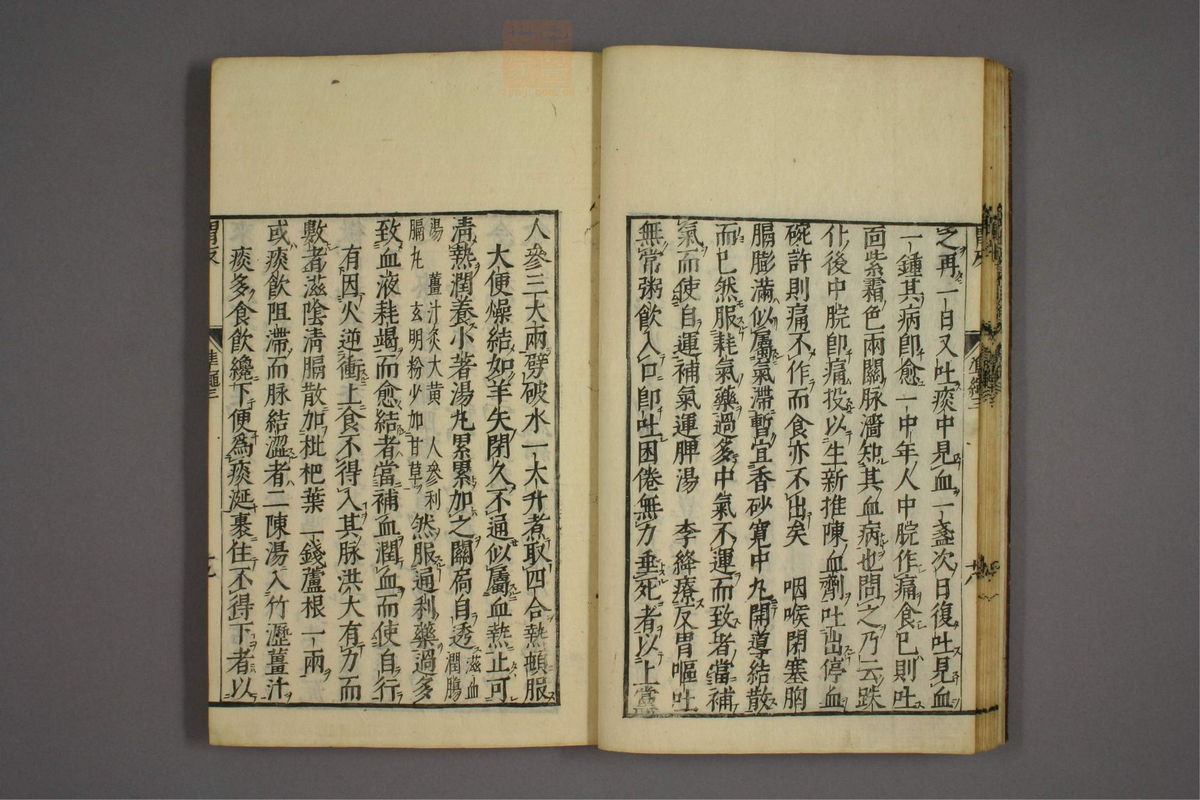 之再一日又吐痰中見血一盞次日復吐見血
一鍾其病卽愈一中年人中脘作痛食已則吐
面紫霜色兩關脉濇知其血病也問之乃云跌
仆後中脘卽痛投以生新推陳血劑吐出停血
碗許則痛不作而食亦不出矣　咽喉閉塞胸
膈膨滿似屬氣滯暫宜香砂寬中丸開導結散
而已然服耗氣藥過多中氣不運而致者當補
氣而使自運補氣運脾湯　李絳療反胃嘔吐
無常粥飲入口卽吐困倦無力垂死者以上黨
人參三大兩劈破水一大升煮取四合熱頓服
大便燥結如羊矢閉久不通似屬血熱止可
清熱潤養小著湯丸累累加之關扃自透滋血潤腸
湯　薑汁炙大黃　人參利膈丸　玄明粉少加甘草　然服通利藥過多
致血液耗竭而愈結者當補血潤血而使自行
有因火逆衝上食不得入其脉洪大有力而
數者滋陰清膈散加枇杷葉一錢蘆根一兩
或痰飲阻滯而脉結澀者二陳湯入竹瀝薑汁
痰多食飲纔下便爲痰涎裹住不得下者以
準繩三